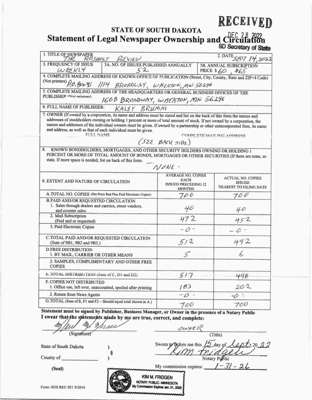 RECEIVED
DEC 28 2022
SD Secretary of State
STATE OF SOUTH DAKOTA
Statement of Legal Newspaper Ownership and Circulation
1. TITLE OF NEWSPAPER
THE ROSHOLT REVIEW
2. DATE
SEPT 14, 2022
3. FREQUENCY OF ISSUE
WEEKLY
3A. NO. OF ISSUES PUBLISHED ANNUALLY
52
3B. ANNUAL SUBSCRIPTION PRICE
$60, $65
4. COMPLETE MAILING ADDRESS OF KNOWN OFFICE OF PUBLICATION (Street, City, County, State and ZIP+4 Code)
(Not printers)
1114 BROADWAY, WHEATON, MN 56296
5. COMPLETE MAILING ADDRESS OF THE HEADQUARTERS OR GENERAL BUSINESS OFFICES OF THE
PUBLISHER (Not printers)
1608 BROADWAY, WHEATON, MN 56296
6. FULL NAME OF PUBLISHER:
7. OWNER (If owned by a corporation, its name and address must be stated and list on the back of this form the names and
addresses of stockholders owning or holding 1 percent or more of total amount of stock. If not owned by a corporation, the
names and addresses of the individual owners must be given. If owned by a partnership or other unincorporated firm, its name
and address, as well as that of each individual must be given.
FULL NAME
COMPLETE MAILING ADDRESS
(SEE BACK SIDE)
8. KNOWN BONDHOLDERS, MORTGAGEES, AND OTHER SECURITY HOLDERS OWNING OR HOLDING 1
PERCENT OR MORE OF TOTAL AMOUNT OF BONDS, MORTGAGES OR OTHER SECURITIES (If there are none, so
state. If more space is needed, list on back of this form.
- NONE -
9. EXTENT AND NATURE OF CIRCULATION
AVERAGE NO. COPIES EACH ISSUED PRECEDING 12 MONTHS
ACTUAL NO. COPIES ISSUED NEAREST TO FILING DATE
A. TOTAL NO. COPIES
700
700
B. PAID AND/OR REQUESTED CIRCULATION
1. Sales through dealers and carriers, street vendors, and counter sales.
40
40
2. Mail Subscription
(Paid and or requested)
472
452
3. Paid Electronic Copies
-0-
-0-
C. TOTAL PAID AND/OR REQUESTED CIRCULATION
(Sum of 9B1, 9B2 and 9B3.)
512
492
D. FREE DISTRIBUTION
1. BY MAIL, CARRIER OR OTHER MEANS
5
6
2. SAMPLES, COMPLIMENTARY AND OTHER FREE COPIES
E. TOTAL DISTRIBUTION (Sum of C, D1 and D2)
517
498
F. COPIES NOT DISTRIBUTED
1. Office use, left over, unaccounted, spoiled after printing
183
202
2. Return from News Agents
-0-
-0-
G. TOTAL (Sum of E, F1 and F2 - Should equal total shown in A.)
700
700
Statement must be signed by Publisher, Business Manager, or Owner in the presence of a Notary Public
I swear that the statements made by me are true, correct, and complete:
(Signature)
OWNER
(Title)
State of South Dakota )
Sworn to before me this 15 day of Sept. 2022
County of )
Kim Fridgen
Notary Public
(Seal)
My commission expires: 1-31-26
KIM M. FRIDGEN
NOTARY PUBLIC - MINNESOTA
My Commission Expires Jan. 31, 2026